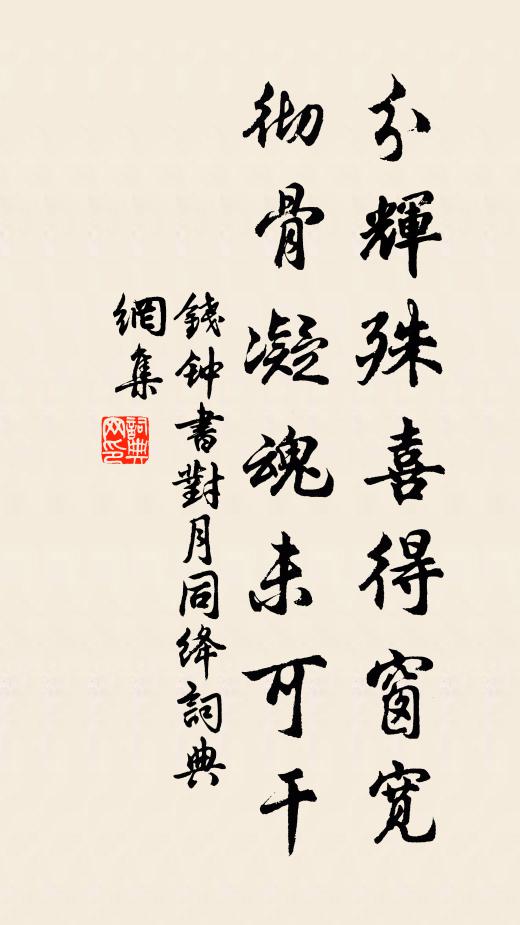 分輝殊喜得窗寬
彻骨凝魂未可干
錢钟書對月同绛詞典
網集
詞典
网印